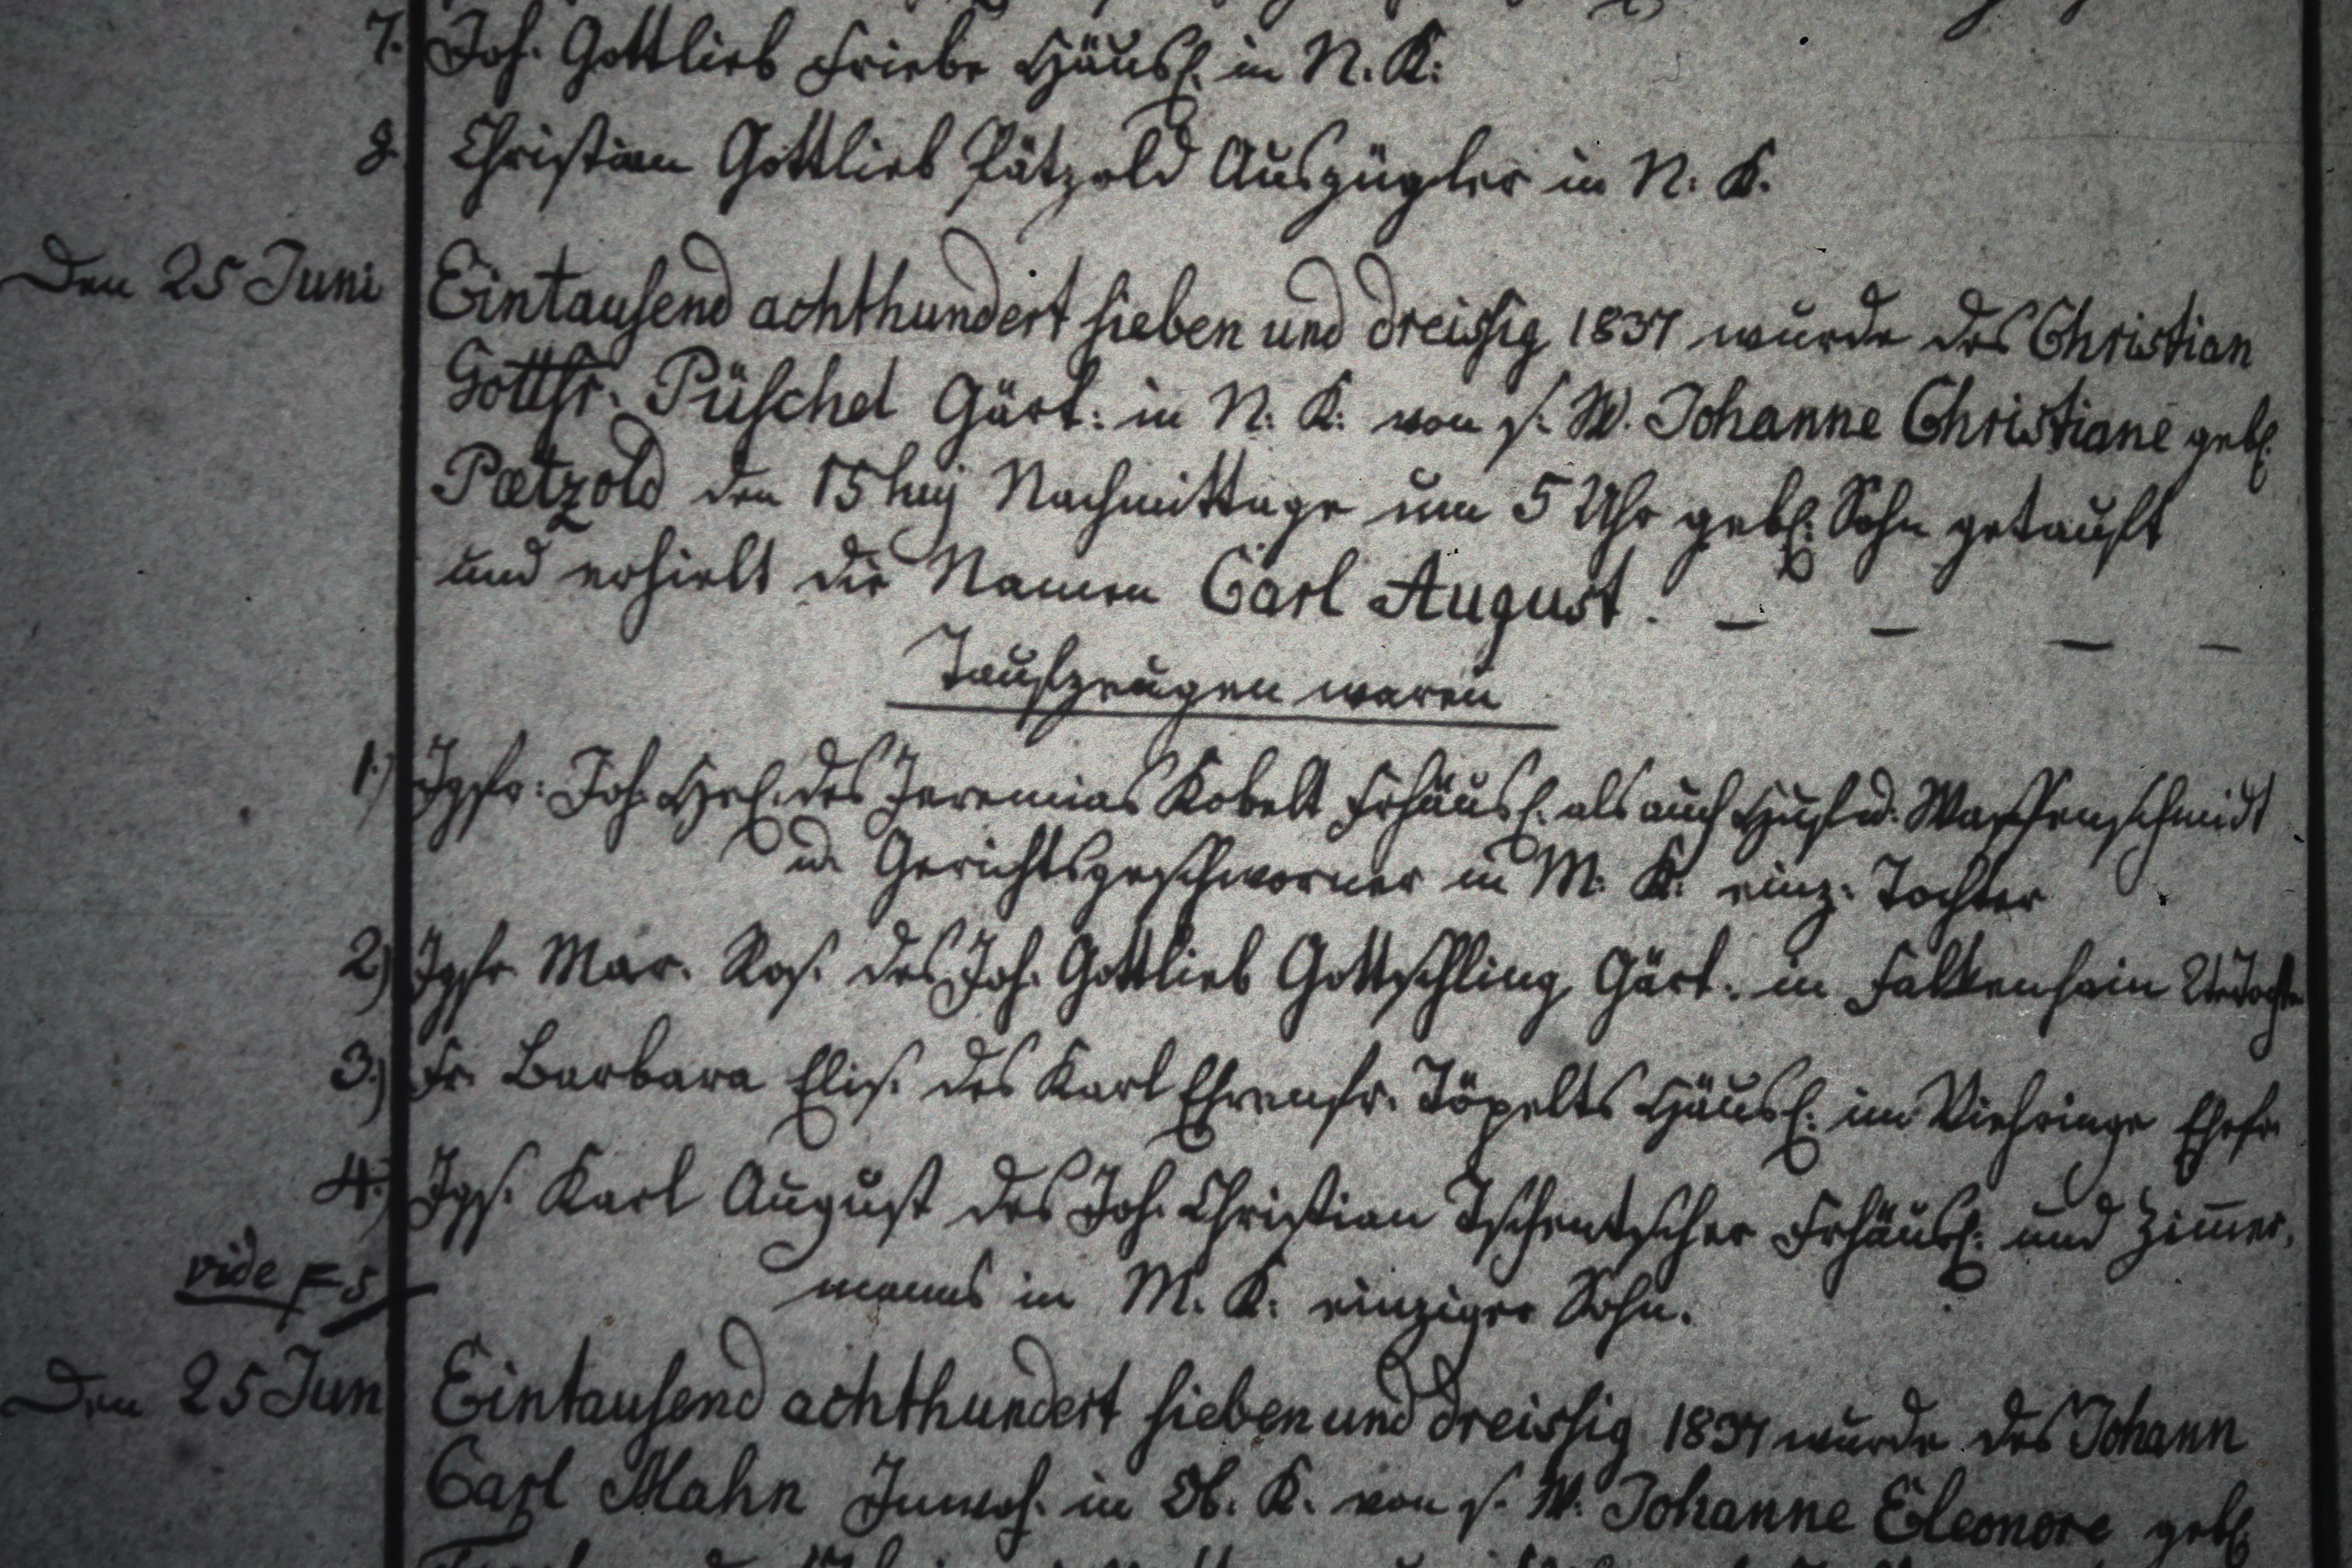 7. Joh. Gottlieb Friebe Häusl. in N. K:
8. Christian Gottlieb Pätzold Auszügler in N: K.
Den 25 Juni Eintausend achthundert sieben und dreissig 1837 wurde des Christian
Gottfr. Püschel Gärt: in N: K: von s. W. Johanne Christiane gebl.
Pætzold den 15 huj Nachmittage um 5 Uhr gebl: Sohn getauft
und erhielt die Namen Carl August. – – – –
Taufzeugen waren
1.) Jgfr: Joh. Hel. des Jeremias Kobelt Frhäusl. als auch Huf u. Waffenschmidt
u. Gerichtsgeschworner in M: K: einz. Tochter
2.) Jgfr. Mar. Ros. des Joh. Gottlieb Gottschling Gärt. in Falkenhain 2te Tochter
3.) Fr. Barbara Elis. des Karl Ehrenfr. Töpelts Häusl: im Viehringe Ehefr.
4.) Jgs. Karl August des Joh. Christian Tschentscher Frhäusl: und Zimer,
manns in M. K: einziger Sohn.
vide F 5
Den 25 Jun Eintausend achthundert sieben und dreissig 1837 wurde des Johann
Carl Mahn Inwoh. in Ob. K. von s. W. Johanne Eleonore gebl.